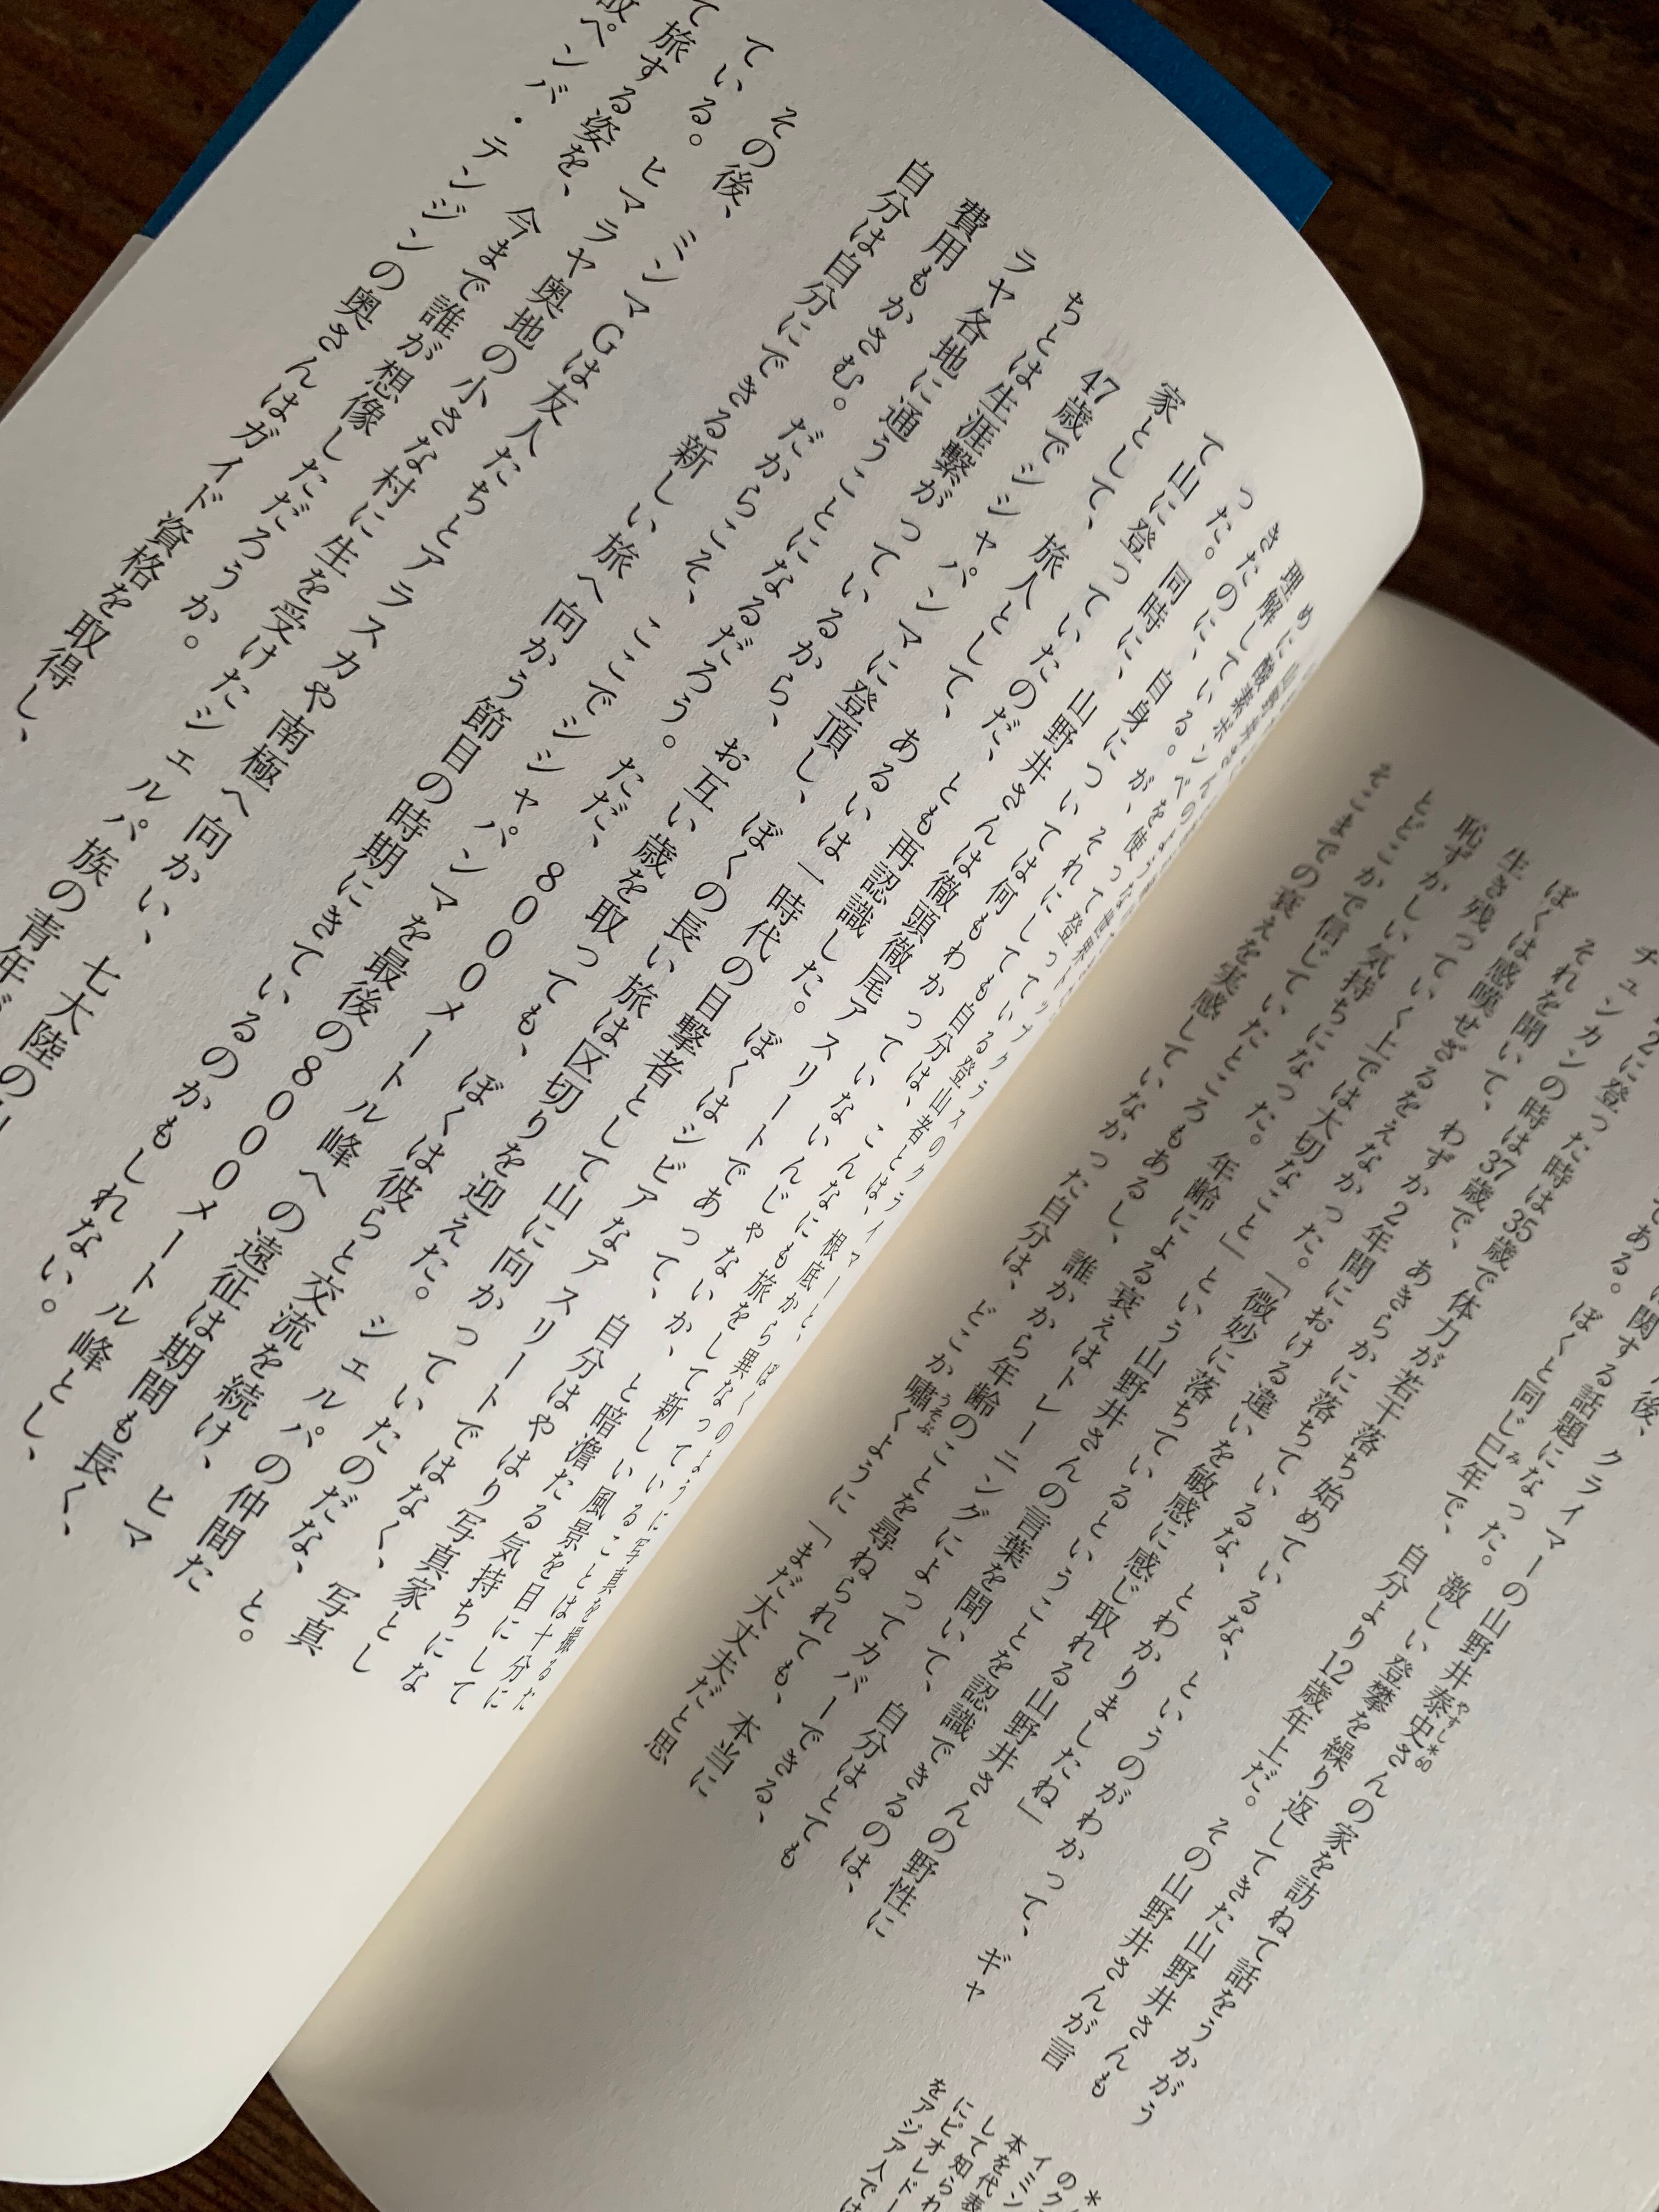 後、クライマーの山野井泰史さんの家を訪ねて話をうかがう
に関する話題になった。激しい登攀を繰り返してきた山野井さんも
である。ぼくと同じ巳年で、自分より12歳年上だ。その山野井さんが言
2に登った時は35歳で体力が若干落ち始めているな、というのがわかって、ギャ
チュンカンの時は37歳で、あきらかに落ちているな、とわかりましたね」
それを聞いて、わずか2年間における違いを敏感に感じ取れる山野井さんの野性に
ぼくは感嘆せざるをえなかった。「微妙に落ちているということを認識できるのは、
生き残っていく上では大切なこと」という山野井さんの言葉を聞いて、自分はとても
恥ずかしい気持ちになった。年齢による衰えはトレーニングによってカバーできる、
とどこかで信じていたところもあるし、誰かから年齢のことを尋ねられても、本当に
そこまでの衰えを実感していなかった自分は、どこか嘯くように「まだ大丈夫だと思
イミン
本を代表
して知られ
にピオレドー
をアジア人では
山野井さんのような世界トップクラスのクライマーと、ぼくのように写真を撮るた
めに酸素ボンベを使って登っている登山者とは、根底から異なっていることは十分に
理解している。が、それにしても自分は、こんなにも旅をして新しい風景を目にして
きたのに、自身については何もわかっていないんじゃないか、と暗澹たる気持ちにな
った。同時に、山野井さんは徹頭徹尾アスリートであって、自分はやはり写真家とし
て山に登っていたのだ、とも再認識した。ぼくはシビアなアスリートではなく、写真
家として、旅人として、あるいは一時代の目撃者として山に向かっていたのだな、と。
47歳でシシャパンマに登頂し、ぼくの長い旅は区切りを迎えた。シェルパの仲間た
ちとは生涯繋がっているから、お互い歳を取っても、ぼくは彼らと交流を続け、ヒマ
ラヤ各地に通うことになるだろう。ただ、8000メートル峰への遠征は期間も長く、
費用もかさむ。だからこそ、ここでシシャパンマを最後の8000メートル峰とし、
自分は自分にできる新しい旅へ向かう節目の時期にきているのかもしれない。
その後、ミンマGは友人たちとアラスカや南極へ向かい、七大陸の
ている。ヒマラヤ奥地の小さな村に生を受けたシェルパ族の青年が
て旅する姿を、今まで誰が想像しただろうか。
故ペンバ・テンジンの奥さんはガイド資格を取得し、